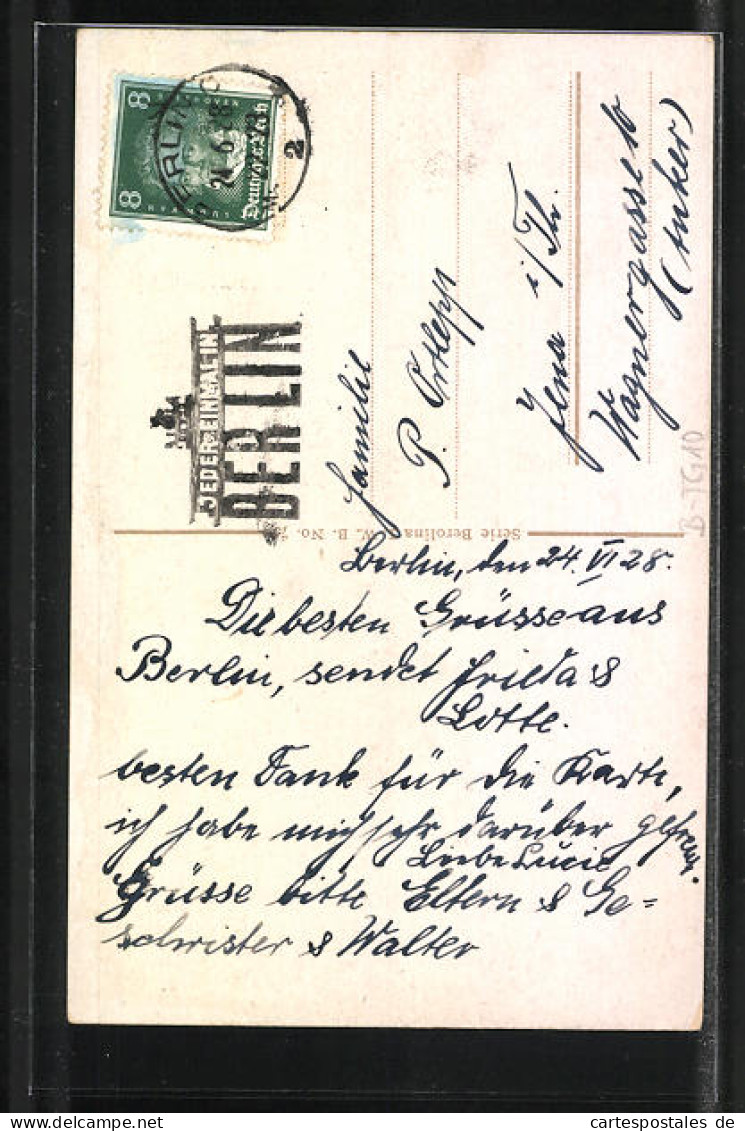 8 8
Deutsches Reich
BERLIN C
24.6.28
2
JEDER EINMAL IN
BERLIN
Familie
P. Ortlepp
Jena i/Th.
Wagnergasse 16
(Anker)
Serie Berolina W. B. No.
Berlin, den 24. VI 28.
Die besten Grüsse aus
Berlin, sendet Frieda &
Lotte.
besten Dank für die Karte,
ich habe mich sehr darüber gefreut.
Liebe Lucie
Grüsse bitte Eltern & Ge=
schwister & Walter
B-TG10
cartespostales de